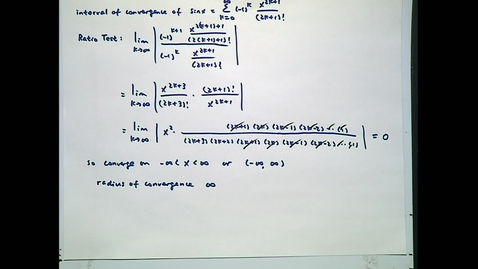 interval of convergence of sinx = ∑_{k=0}^{∞} (-1)^k x^{2k+1}/(2k+1)!
Ratio Test: lim_{k→∞} | (-1)^{k+1} x^{2(k+1)+1}/(2(k+1)+1)! / (-1)^k x^{2k+1}/(2k+1)! |
= lim_{k→∞} | x^{2k+3}/(2k+3)! · (2k+1)!/x^{2k+1} |
= lim_{k→∞} | x^2 · (2k+1)(2k)(2k-1)(2k-2)...(1) / (2k+3)(2k+2)(2k+1)(2k)(2k-1)(2k-2)...(1) | = 0
so converge on -∞ < x < ∞ or (-∞, ∞)
radius of convergence ∞